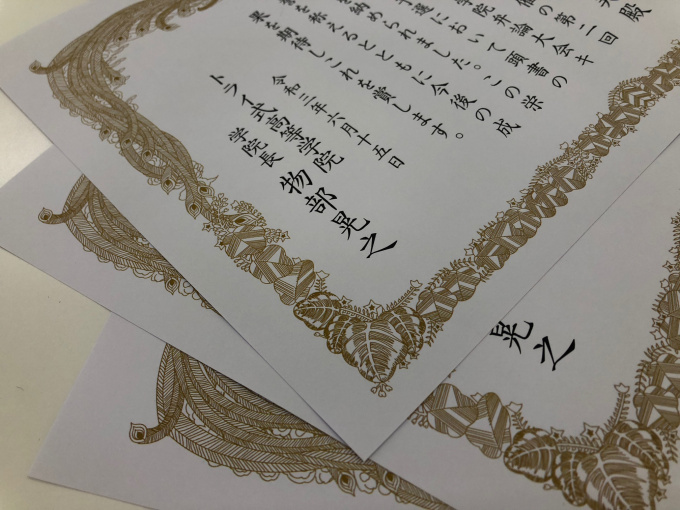 殿
催の第二回
学院弁論大会キ
選において頭書の
を納められました。この栄
誉を称えるとともに今後の成
果を期待しこれを賞します。
令和三年六月十五日
トライ式高等学院
学院長 物部晃之
晃之